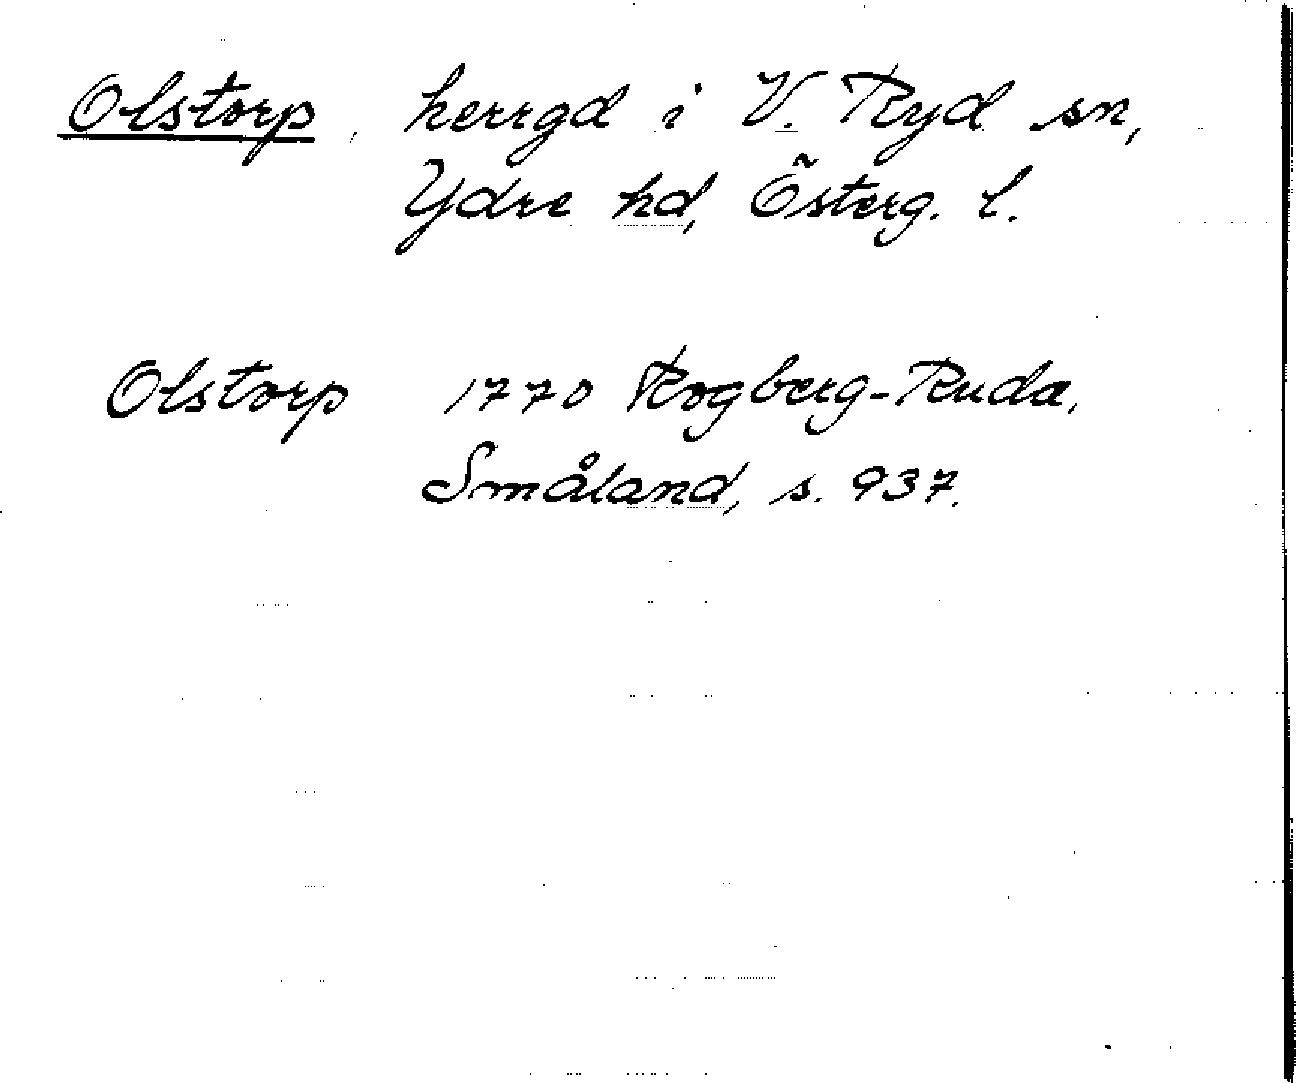 Olstorp, herrgd i V. Ryd sn,
Ydre hd, Österg. l.
Olstorp 1770 Rogberg-Ruda,
Småland, s. 937.